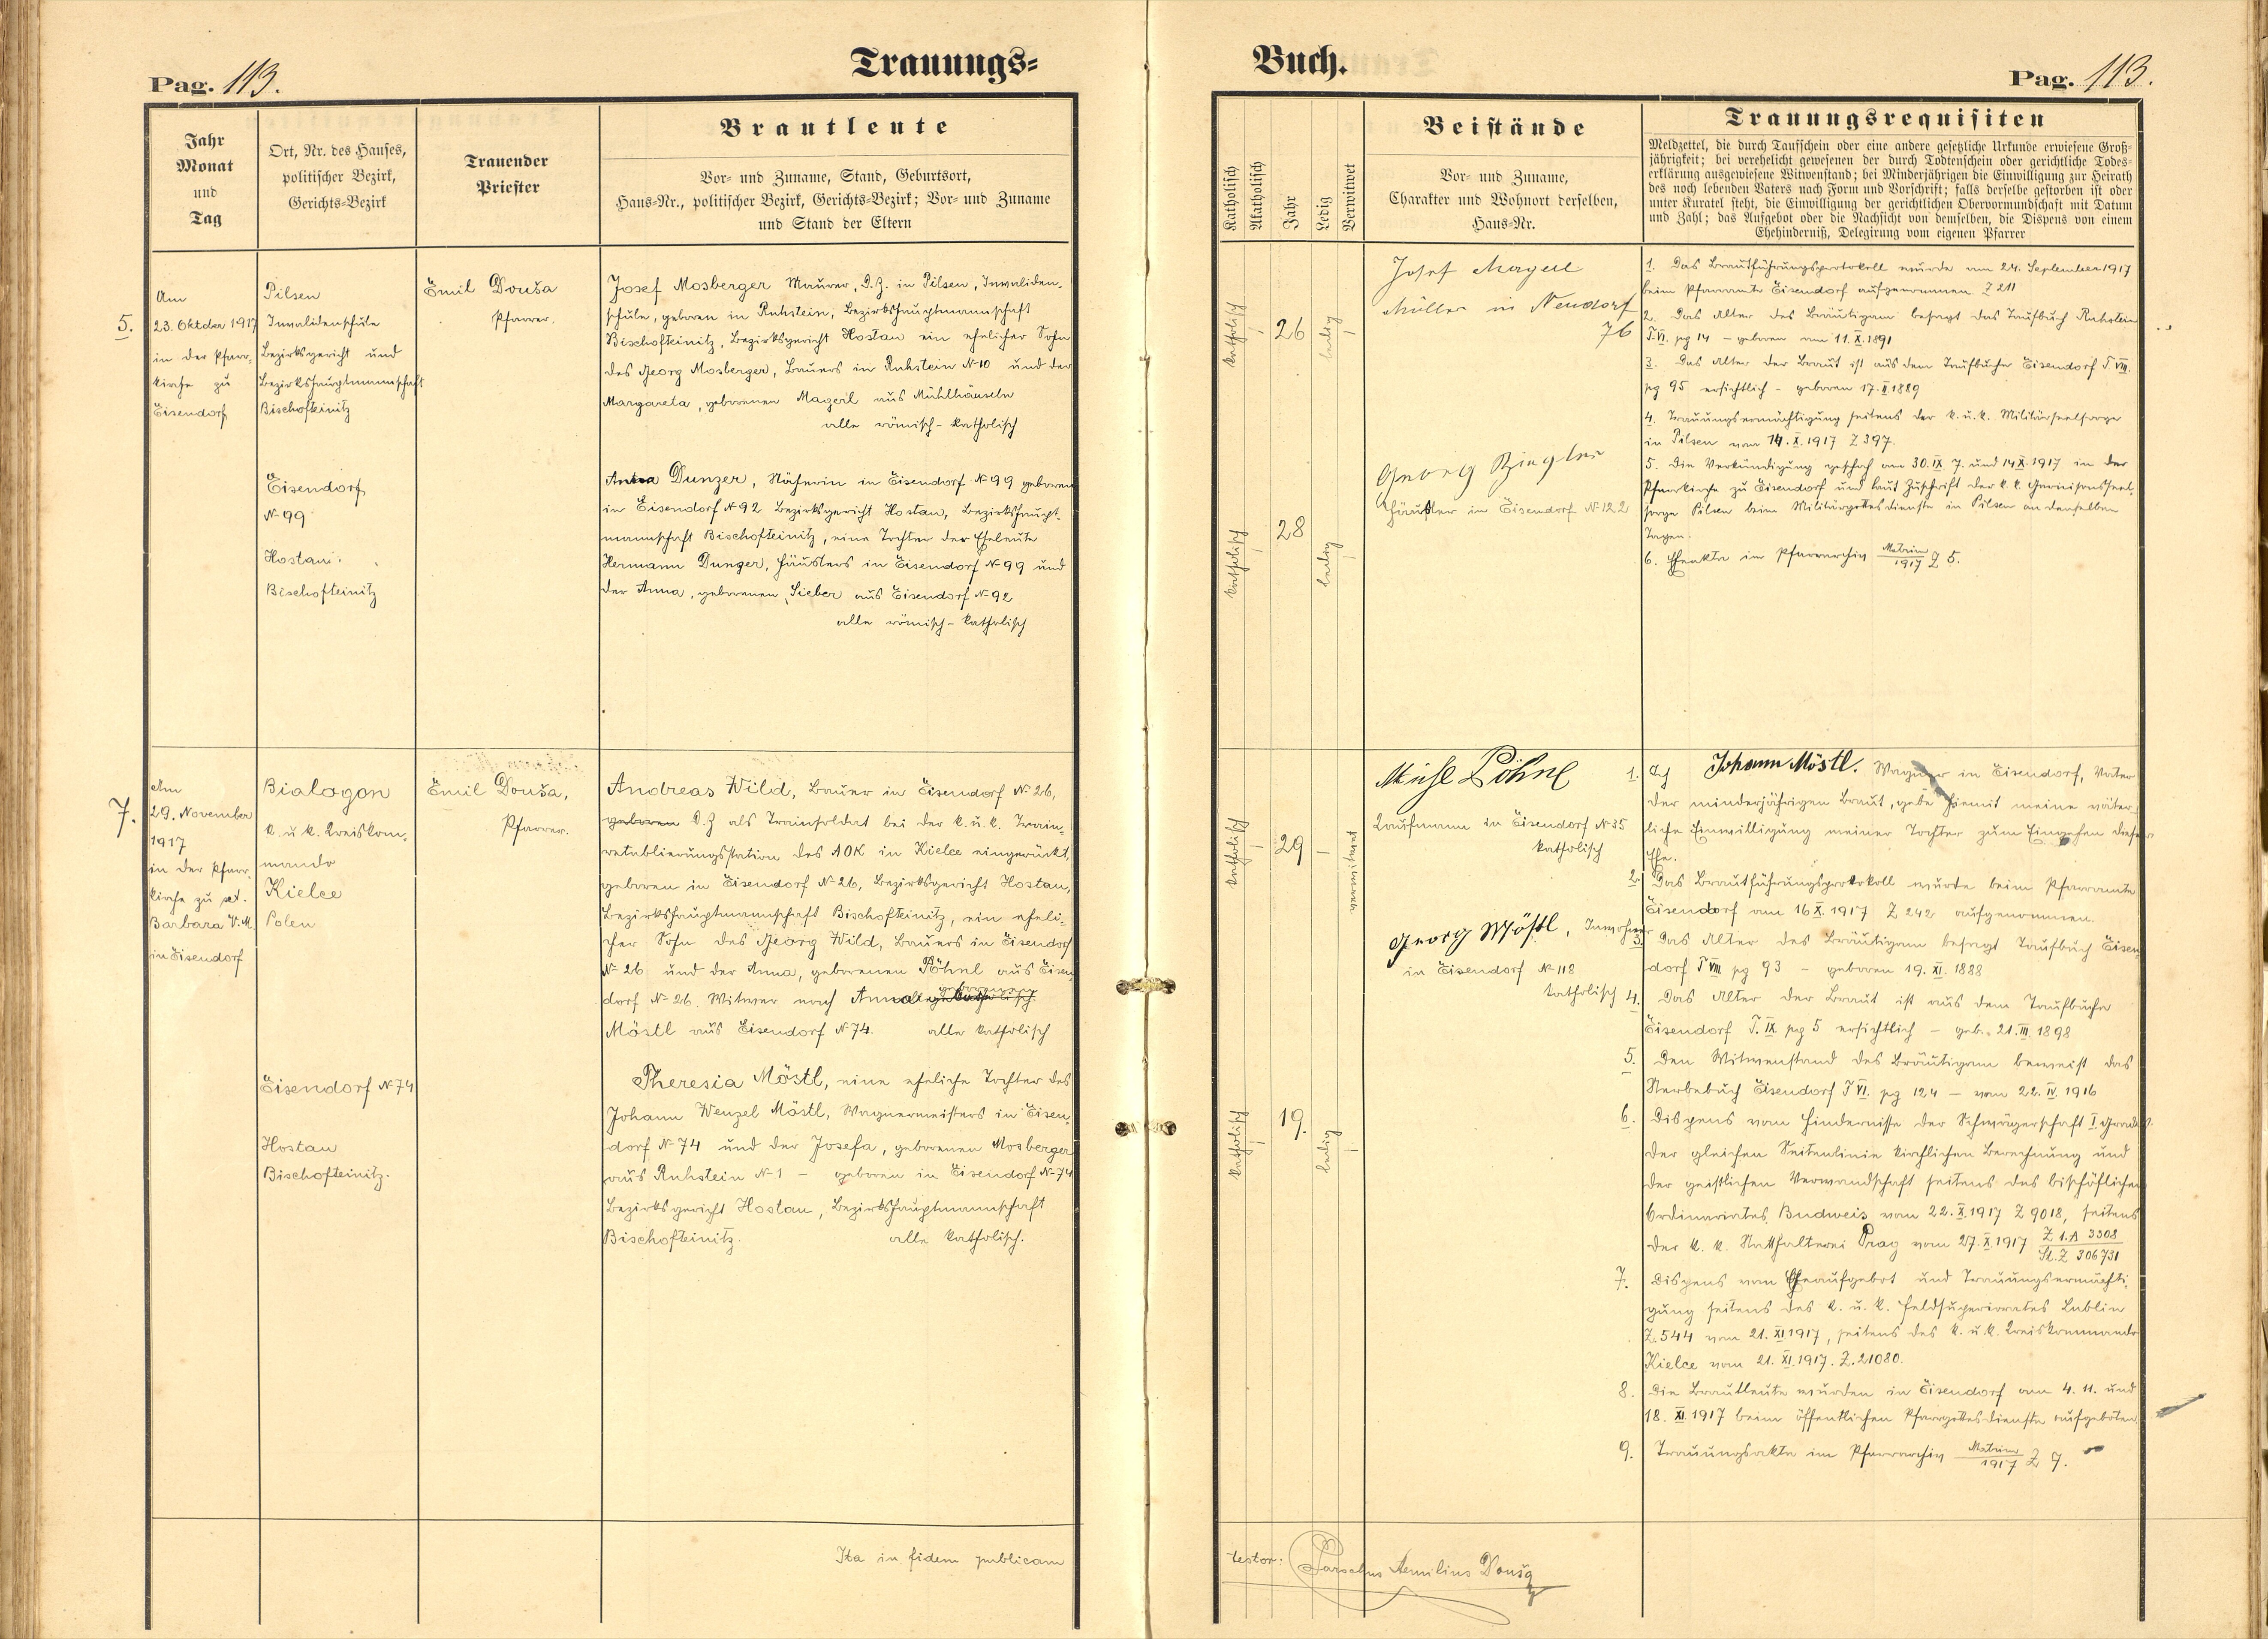 Pag. 113.
Trauungs=
Jahr
Monat
und
Tag
Ort, Nr. des Hauses,
politischer Bezirk,
Gerichts-Bezirk
Trauender
Priester
Brautleute
Vor- und Zuname, Stand, Geburtsort,
Haus-Nr., politischer Bezirk, Gerichts-Bezirk; Vor- und Zuname
und Stand der Eltern
5.
Am
23. Oktober 1917
in der Pfarr-
kirche zu
Eisendorf
Pilsen
Invalidenschule
Bezirksgericht und
Bezirkshauptmannschaft
Bischofteinitz
Emil Douša
Pfarrer.
Josef Mosberger Maurer, D.Z. in Pilsen, Invaliden-
schule, geboren in Ruhstein, Bezirkshauptmannschaft
Bischofteinitz, Bezirksgericht Hostau ein ehelicher Sohn
des Georg Mosberger, Bauers in Ruhstein N 10 und der
Margareta, geborenen Magerl aus Mühlhäuseln
alle römisch-katholisch
Eisendorf
N 99
Hostau.
Bischofteinitz
Anna Dunzer, Näherin in Eisendorf N 99 geboren
in Eisendorf N 92 Bezirksgericht Hostau, Bezirkshaupt-
mannschaft Bischofteinitz, eine Tochter der Eheleute
Hermann Dunzer, Häuslers in Eisendorf N 99 und
der Anna, geborenen Sieber aus Eisendorf N 92
alle römisch-katholisch
7.
Am
29. November
1917
in der Pfarr-
kirche zu set.
Barbara V.M.
in Eisendorf
Bialogon
k. u k. Kreiskom-
mando
Kielce
Polen
Emil Douša,
Pfarrer.
Andreas Wild, Bauer in Eisendorf N 26,
geboren D.Z als Trainsoldat bei der k. u. k. Train-
retablierungsstation des AOK in Kielce eingerückt,
geboren in Eisendorf N 26, Bezirksgericht Hostau,
Bezirkshauptmannschaft Bischofteinitz, ein eheli-
cher Sohn des Georg Wild, Bauers in Eisendorf
N 26 und der Anna, geborenen Pöhnl aus Eisen-
dorf N 26. Witwer nach Anna geborenen
Möstl aus Eisendorf N 74. alle katholisch
Eisendorf N 74
Hostau
Bischofteinitz.
Theresia Möstl, eine eheliche Tochter des
Johann Wenzel Möstl, Wagnermeisters in Eisen-
dorf N 74 und der Josefa, geborenen Mosberger
aus Ruhstein N 1 – geboren in Eisendorf N 74
Bezirksgericht Hostau, Bezirkshauptmannschaft
Bischofteinitz. alle katholisch.
Ita in fidem publicam
Buch.
Pag. 113.
Katholisch
Akatholisch
Jahr
Ledig
Verwitwet
Beistände
Vor- und Zuname,
Charakter und Wohnort derselben,
Haus-Nr.
Trauungsrequisiten
Meldzettel, die durch Taufschein oder eine andere gesetzliche Urkunde erwiesene Groß-
jährigkeit; bei verehelicht gewesenen der durch Todtenschein oder gerichtliche Todes-
erklärung ausgewiesene Witwenstand; bei Minderjährigen die Einwilligung zur Heirath
des noch lebenden Vaters nach Form und Vorschrift; falls derselbe gestorben ist oder
unter Kuratel steht, die Einwilligung der gerichtlichen Obervormundschaft mit Datum
und Zahl; das Aufgebot oder die Nachsicht von demselben, die Dispens von einem
Ehehinderniß, Delegirung vom eigenen Pfarrer
katholisch
26
ledig
Josef Magerl
Müller in Neudorf
76
katholisch
28
ledig
Georg Ziegler
Häusler in Eisendorf N 122
1. Das Brautführungsprotokoll wurde am 24. September 1917
beim Pfarramte Eisendorf aufgenommen Z 211
2. Das Alter des Bräutigam besagt das Taufbuch Ruhstein
T. VI. pg 14 – geboren am 11. X. 1891
3. Das Alter der Braut ist aus dem Taufbuche Eisendorf T. VIII.
pg 95 ersichtlich – geboren 17. II 1889
4. Trauungsermächtigung seitens der k. u. k. Militärseelsorge
in Pilsen vom 14. X. 1917 Z 397.
5. Die Verkündigung geschah am 30. IX 7. und 14 X. 1917 in der
Pfarrkirche zu Eisendorf und laut Zuschrift der k. k. Garnisonsseel-
sorge Pilsen beim Militärgottesdienste in Pilsen an denselben
Tagen.
6. Eheakta im Pfarrarchiv Matrim/1917 Z 5.
katholisch
29
–
verwitwet
Michl Pöhnl
Kaufmann in Eisendorf N 35
katholisch
Georg Möstl, Inwohner
in Eisendorf N 118
katholisch
katholisch
19.
ledig
1. Ich Johann Möstl. Wagner in Eisendorf, Vater
der minderjährigen Braut, gebe hiemit meine väter-
liche Einwilligung meiner Tochter zum Eingehen dieser
Ehe.
2. Das Brautführungsprotokoll wurde beim Pfarramte
Eisendorf am 16 X. 1917 Z 242 aufgenommen.
3. Das Alter des Bräutigam besagt Taufbuch Eisen-
dorf T VIII pg 93 – geboren 19. XI. 1888
4. Das Alter der Braut ist aus dem Taufbuche
Eisendorf T. IX pg 5 ersichtlich – geb. 21. III 1898
5. Den Witwenstand des Bräutigam beweist das
Sterbebuch Eisendorf T VI. pg 124 – vom 22. IV. 1916
6. Dispens vom Hindernisse der Schwägerschaft I Grades
der gleichen Seitenlinie kirchlichen Berechnung und
der geistlichen Verwandschaft seitens des bischöflichen
Ordinariates Budweis vom 22. X. 1917 Z 9018, seitens
der k. k. Statthalterei Prag vom 27. X 1917 Z 1.A 3308/St. Z 306731
7. Dispens vom Eheaufgebot und Trauungsermächti-
gung seitens des k. u. k. Feldsuperiorates Lublin
Z. 544 vom 21. XI 1917, seitens des k. u. k. Kreiskommando
Kielce vom 21. XI. 1917. Z. 21080.
8. Die Brautleute wurden in Eisendorf am 4. 11. und
18. XI. 1917 beim öffentlichen Pfarrgottesdienste aufgeboten.
9. Trauungsakta im Pfarrarchiv Matrim/1917 Z 7.
testor: Parochus Aemilius Douša